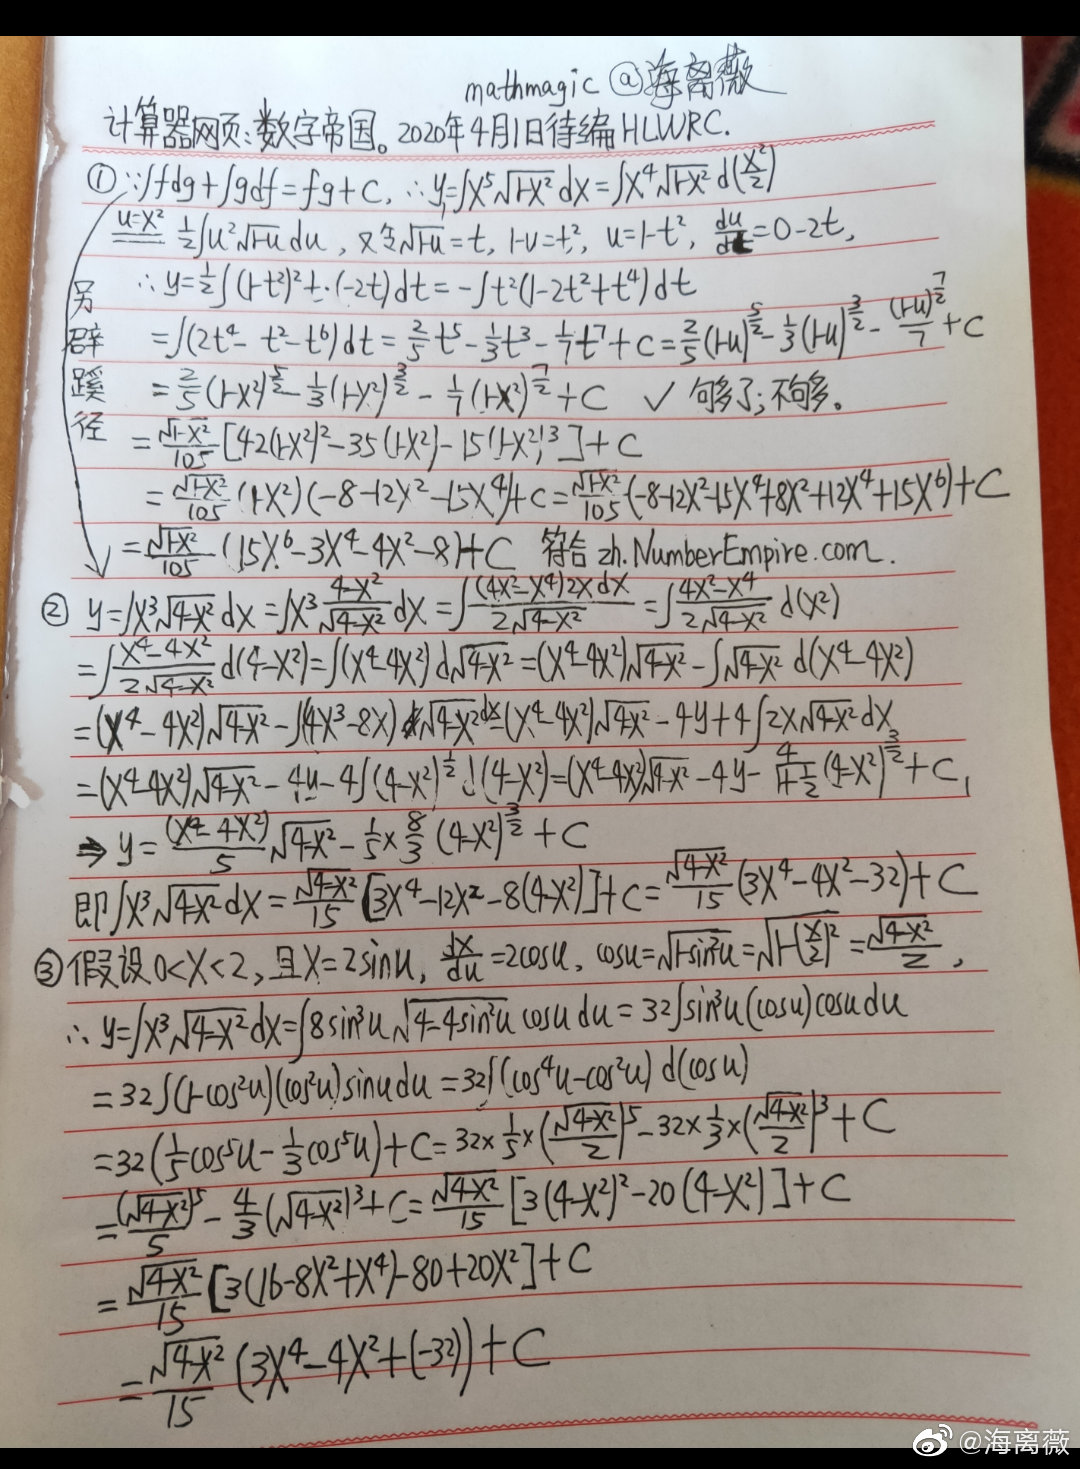 mathmagic @海离薇
计算器网页:数字帝国。2020年4月1日待编HLWRC.
① ∵∫fdg+∫gdf=fg+C, ∴y=∫x⁵√(1-x²) dx=∫x⁴√(1-x²) d(x²/2)
u=x² ½∫u²√(1-u) du, 又令√(1-u)=t, 1-u=t², u=1-t², du/dt=0-2t,
∴y=½∫(1-t²)²t·(-2t)dt=-∫t²(1-2t²+t⁴)dt
=∫(2t⁴-t²-t⁶)dt=⅖t⁵-⅓t³-⅐t⁷+C=⅖(1-u)^(5/2)-⅓(1-u)^(3/2)-(1-u)^(7/2)/7+C
=⅖(1-x²)^(5/2)-⅓(1-x²)^(3/2)-⅐(1-x²)^(7/2)+C ✓ 够了;不够。
=√(1-x²)/105[42(1-x²)²-35(1-x²)-15(1-x²)³]+C
=√(1-x²)/105(1-x²)(-8-12x²-15x⁴)+C=√(1-x²)/105(-8-12x²-15x⁴+8x²+12x⁴+15x⁶)+C
=√(1-x²)/105(15x⁶-3x⁴-4x²-8)+C 符合zh.NumberEmpire.com.
另辟蹊径
② y=∫x³√(4-x²) dx=∫x³(4-x²)/√(4-x²) dx=∫(4x²-x⁴)2xdx/(2√(4-x²))=∫(4x²-x⁴)/(2√(4-x²)) d(x²)
=∫(x⁴-4x²)/(2√(4-x²)) d(4-x²)=∫(x⁴-4x²)d√(4-x²)=(x⁴-4x²)√(4-x²)-∫√(4-x²) d(x⁴-4x²)
=(x⁴-4x²)√(4-x²)-∫(4x³-8x)√(4-x²)dx=(x⁴-4x²)√(4-x²)-4y+4∫2x√(4-x²)dx
=(x⁴-4x²)√(4-x²)-4y-4∫(4-x²)^(1/2)d(4-x²)=(x⁴-4x²)√(4-x²)-4y-4/(1+½)(4-x²)^(3/2)+C₁
⇒y=(x⁴-4x²)/5√(4-x²)-⅕×8/3(4-x²)^(3/2)+C
即∫x³√(4-x²)dx=√(4-x²)/15[3x⁴-12x²-8(4-x²)]+C=√(4-x²)/15(3x⁴-4x²-32)+C
③假设0<x<2,且x=2sinu, dx/du=2cosu, cosu=√(1-sin²u)=√(1-(x/2)²)=√(4-x²)/2,
∴y=∫x³√(4-x²)dx=∫8sin³u√(4-4sin²u) cosudu=32∫sin³u(cosu)cosudu
=32∫(1-cos²u)(cos²u)sinudu=32∫(cos⁴u-cos²u)d(cosu)
=32(⅕cos⁵u-⅓cos⁵u)+C=32×⅕×(√(4-x²)/2)⁵-32×⅓×(√(4-x²)/2)³+C
=(√(4-x²))⁵/5-4/3(√(4-x²))³+C=√(4-x²)/15[3(4-x²)²-20(4-x²)]+C
=√(4-x²)/15[3(16-8x²+x⁴)-80+20x²]+C
=√(4-x²)/15(3x⁴-4x²+(-32))+C
@海离薇